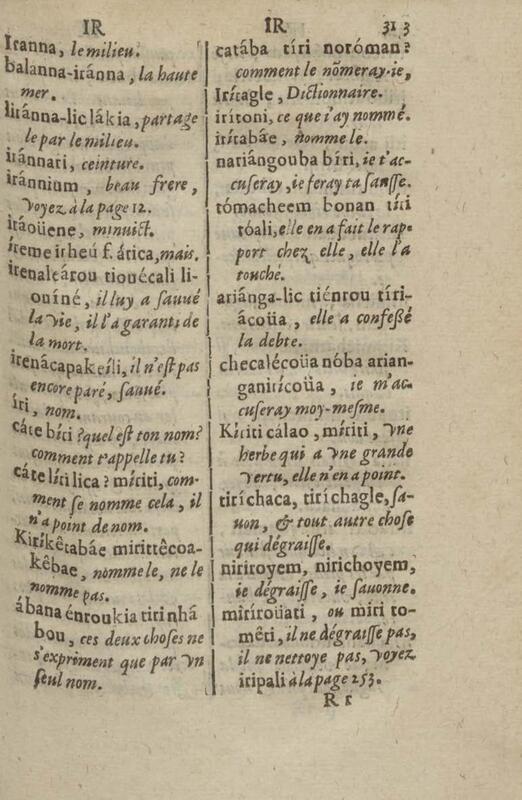 IR
IR
313
Iranna, le milieu.
balanna-iránna, la haute
mer.
liránna-lic lákia, partage
le par le milieu.
iránnari, ceinture.
iránnium, beau frere,
voyez à la page 12.
iráoüene, minuict.
íreme irheú f. ática, mais.
irenaléárou tiouécali li-
ouíné, il luy a sauué
la vie, il l'a garanti de
la mort.
irenácapakeíli, il n'est pas
encore paré, sauué.
íri, nom.
cáte bíri ? quel est ton nom?
comment t'appelle tu ?
cáte líri lica ? míriri, com-
ment se nomme cela, il
n'a point de nom.
Kiríkêtabáe mirittêcoa-
kêbae, nomme le, ne le
nomme pas.
ábana énroukia tiri nhá
bou, ces deux choses ne
s'expriment que par vn
seul nom.
catába tíri noróman?
comment le nõmeray-ie,
Irícagle, Dictionnaire.
irítoni, ce que i'ay nommé.
irícabáe, nomme le.
nariángouba bíri, ie t'ac-
cuseray, ie feray ta sausse.
tómacheem bonan tíri
tóali, elle en a fait le rap-
port chez elle, elle l'a
touché.
ariánga-lic tiénrou tíri-
ácoüa, elle a confessé
la debte.
checalécoüa nóba arian-
ganirícoüa, ie m'ac-
cuseray moy-mesme.
Kíriti cálao, míriti, vne
herbe qui a vne grande
vertu, elle n'en a point.
tirí chaca, tirí chagle, sa-
uon, & tout autre chose
qui dégraisse.
niriroyem, nirichoyem,
ie dégraisse, ie sauonne.
miríroüati, ou miri to-
mêti, il ne dégraisse pas,
il ne nettoye pas, voyez
iripali à la page 253.
R r